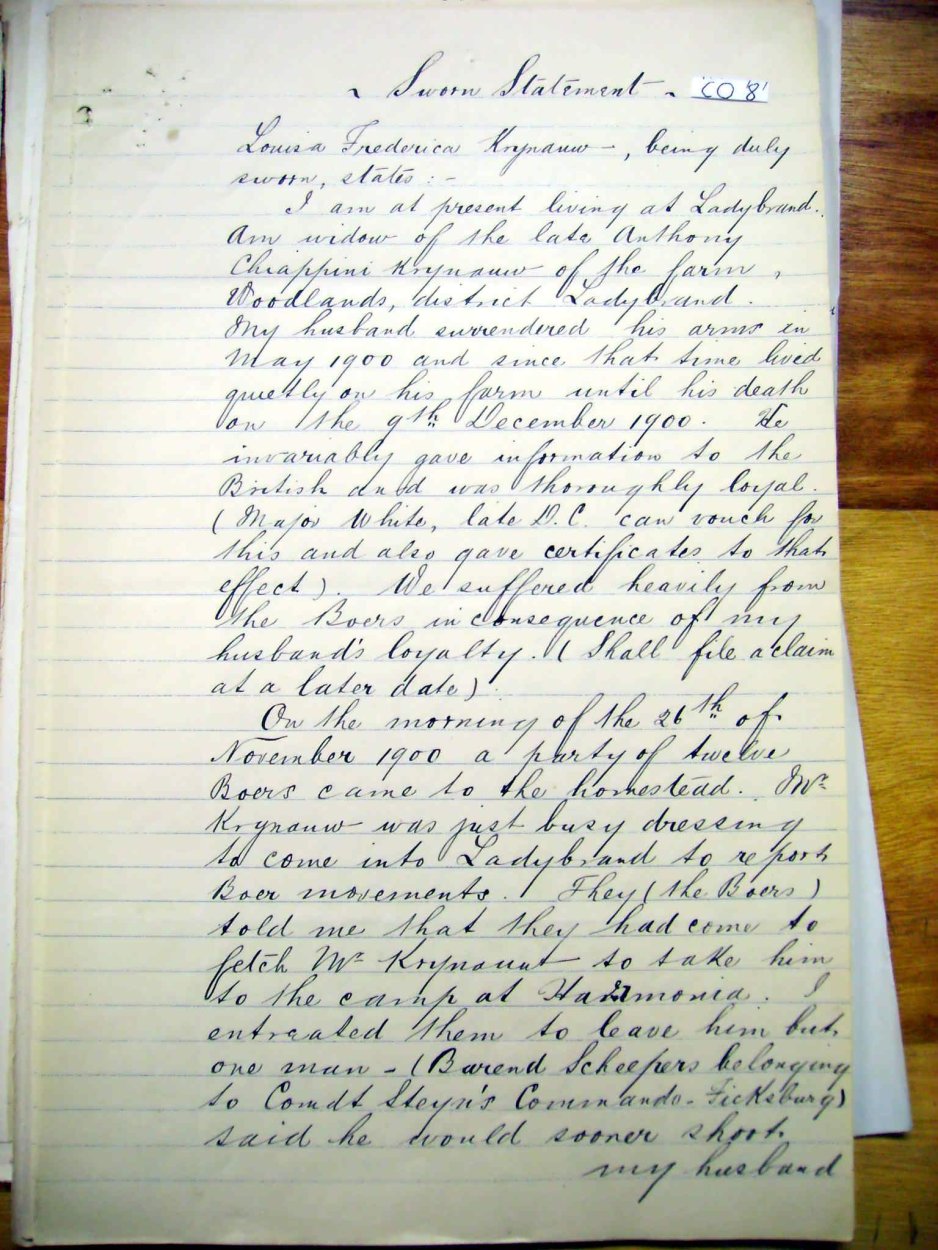 ~ Sworn Statement ~ CO '8'
Louisa Frederica Krynauw -, being duly
sworn, states : -
I am at present living at Ladybrand.
Am widow of the late Anthony
Chiappini Krynauw of the farm,
Woodlands, district Ladybrand.
My husband surrendered his arms in
May 1900 and since that time lived
quietly on his farm until his death
on the 9th December 1900. He
invariably gave information to the
British and was thoroughly loyal.
(Major White, late D.C. can vouch for
this and also gave certificates to that
effect). We suffered heavily from
the Boers in consequence of my
husband's loyalty. (Shall file a claim
at a later date).
On the morning of the 26th of
November 1900 a party of twelve
Boers came to the homestead. Mr
Krynauw was just busy dressing
to come into Ladybrand to report
Boer movements. They (the Boers)
told me that they had come to
fetch Mr Krynauw to take him
to the camp at Hammonia. I
entreated them to leave him but
one man - (Barend Scheepers belonging
to Comdt Steyn's Commando - Ficksburg)
said he would sooner shoot
my husband